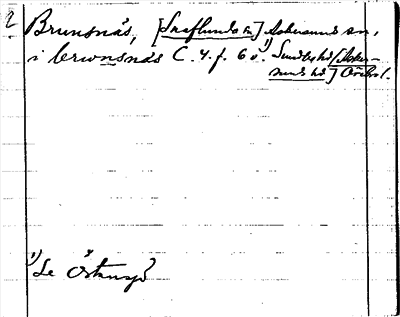 2 Brunsnäs, [Snaflunda sn] Askersund sn,
i brwnsnäs C. 4. f. 60 1) Sundbo hd [Asker-
sunds hd] Örebro l.
1) Se Östansjö